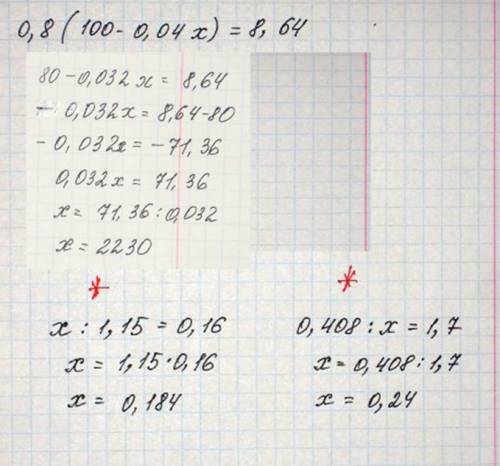 0,8(100-0,04x)=8,64
80-0,032x=8,64
-0,032x=8,64-80
-0,032x=-71,36
0,032x=71,36
x=71,36:0,032
x=2230
* *
x:1,15=0,16
x=1,15·0,16
x=0,184
0,408:x=1,7
x=0,408:1,7
x=0,24